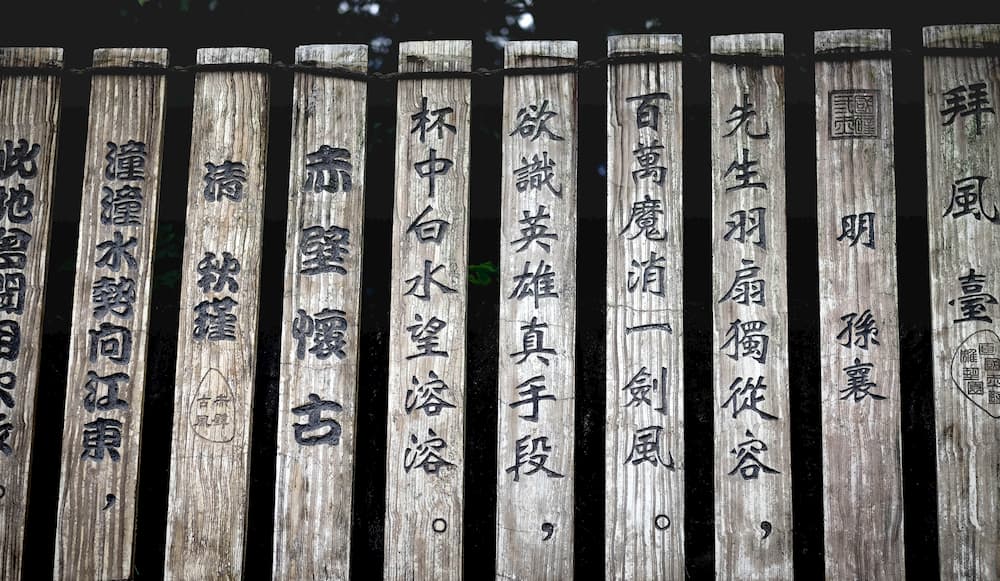 拜風臺
明 孫襄
先生羽扇獨從容，
百萬魔消一劍風。
欲識英雄真手段，
杯中白水望溶溶。
赤壁懷古
清 秋瑾
潼潼水勢向江東，
此地曾聞用火攻。